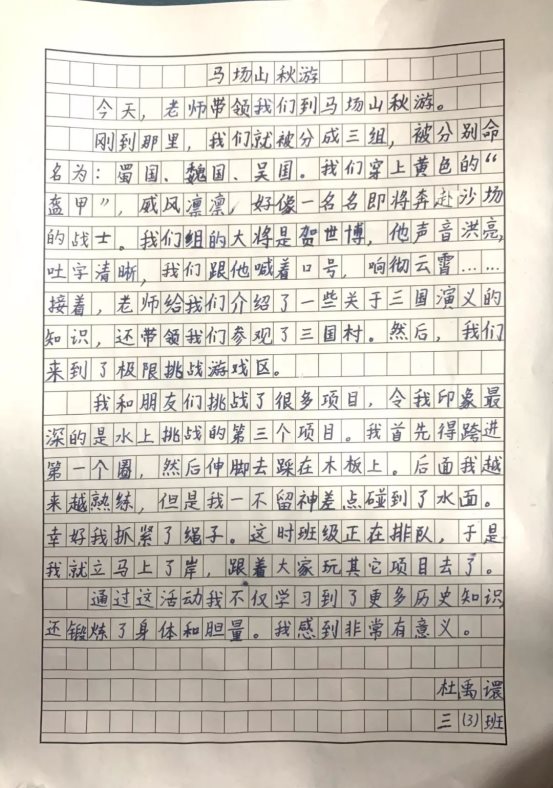 马场山秋游
今天，老师带领我们到马场山秋游。
刚到那里，我们就被分成三组，被分别命
名为：蜀国、魏国、吴国。我们穿上黄色的“
盔甲”，威风凛凛，好像一名名即将奔赴沙场
的战士。我们组的大将是贺世博，他声音洪亮，
吐字清晰，我们跟他喊着口号，响彻云霄……
接着，老师给我们介绍了一些关于三国演义的
知识，还带领我们参观了三国村。然后，我们
来到了极限挑战游戏区。
我和朋友们挑战了很多项目，令我印象最
深的是水上挑战的第三个项目。我首先得跨进
第一个圈，然后伸脚去踩在木板上。后面我越
来越熟练，但是我一不留神差点碰到了水面。
幸好我抓紧了绳子。这时班级正在排队，于是
我就立马上了岸，跟着大家玩其它项目去了。
通过这活动我不仅学习到了更多历史知识
还锻炼了身体和胆量。我感到非常有意义。
杜禹澴
三（3）班